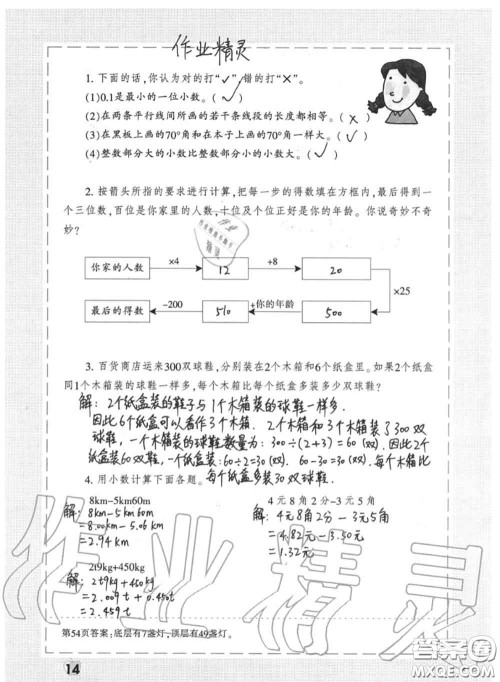 作业精灵
1. 下面的话,你认为对的打“✓”,错的打“×”。
(1)0.1是最小的一位小数。( ✓ )
(2)在两条平行线间所画的若干条线段的长度都相等。( × )
(3)在黑板上画的70°角和在本子上画的70°角一样大。( ✓ )
(4)整数部分大的小数比整数部分小的小数大。( ✓ )
2. 按箭头所指的要求进行计算,把每一步的得数填在方框内,最后得到一
个三位数,百位是你家里的人数,十位及个位正好是你的年龄。你说奇妙不奇
妙?
你家的人数 ×4 12 +8 20
×25
最后的得数 -200 510 +你的年龄 500
3. 百货商店运来300双球鞋,分别装在2个木箱和6个纸盒里。如果2个纸盒
同1个木箱装的球鞋一样多,每个木箱比每个纸盒多装多少双球鞋?
解: 2个纸盒装的鞋子与1个木箱装的球鞋一样多.
因此6个纸盒可以看作3个木箱. 2个木箱和3个木箱装了300双
球鞋, 一个木箱装的球鞋数量为: 300÷(2+3)=60(双). 因此2个
纸盒装60双鞋, 一个纸盒装: 60÷2=30(双). 60-30=30(双). 每个木箱比
每个纸盒多装30双球鞋.
4. 用小数计算下面各题。
8km-5km60m 4元8角2分-3元5角
解: 8km-5km60m 解: 4元8角2分-3元5角
=8.00km-5.06km =4.82元-3.50元
=2.94km =1.32元.
2t9kg+450kg
解: 2t9kg+450kg
=2.009t+0.450t
=2.459t
第54页答案:底层有7盏灯,顶层有49盏灯。
14
作业精灵
答案圈
MXQE.COM